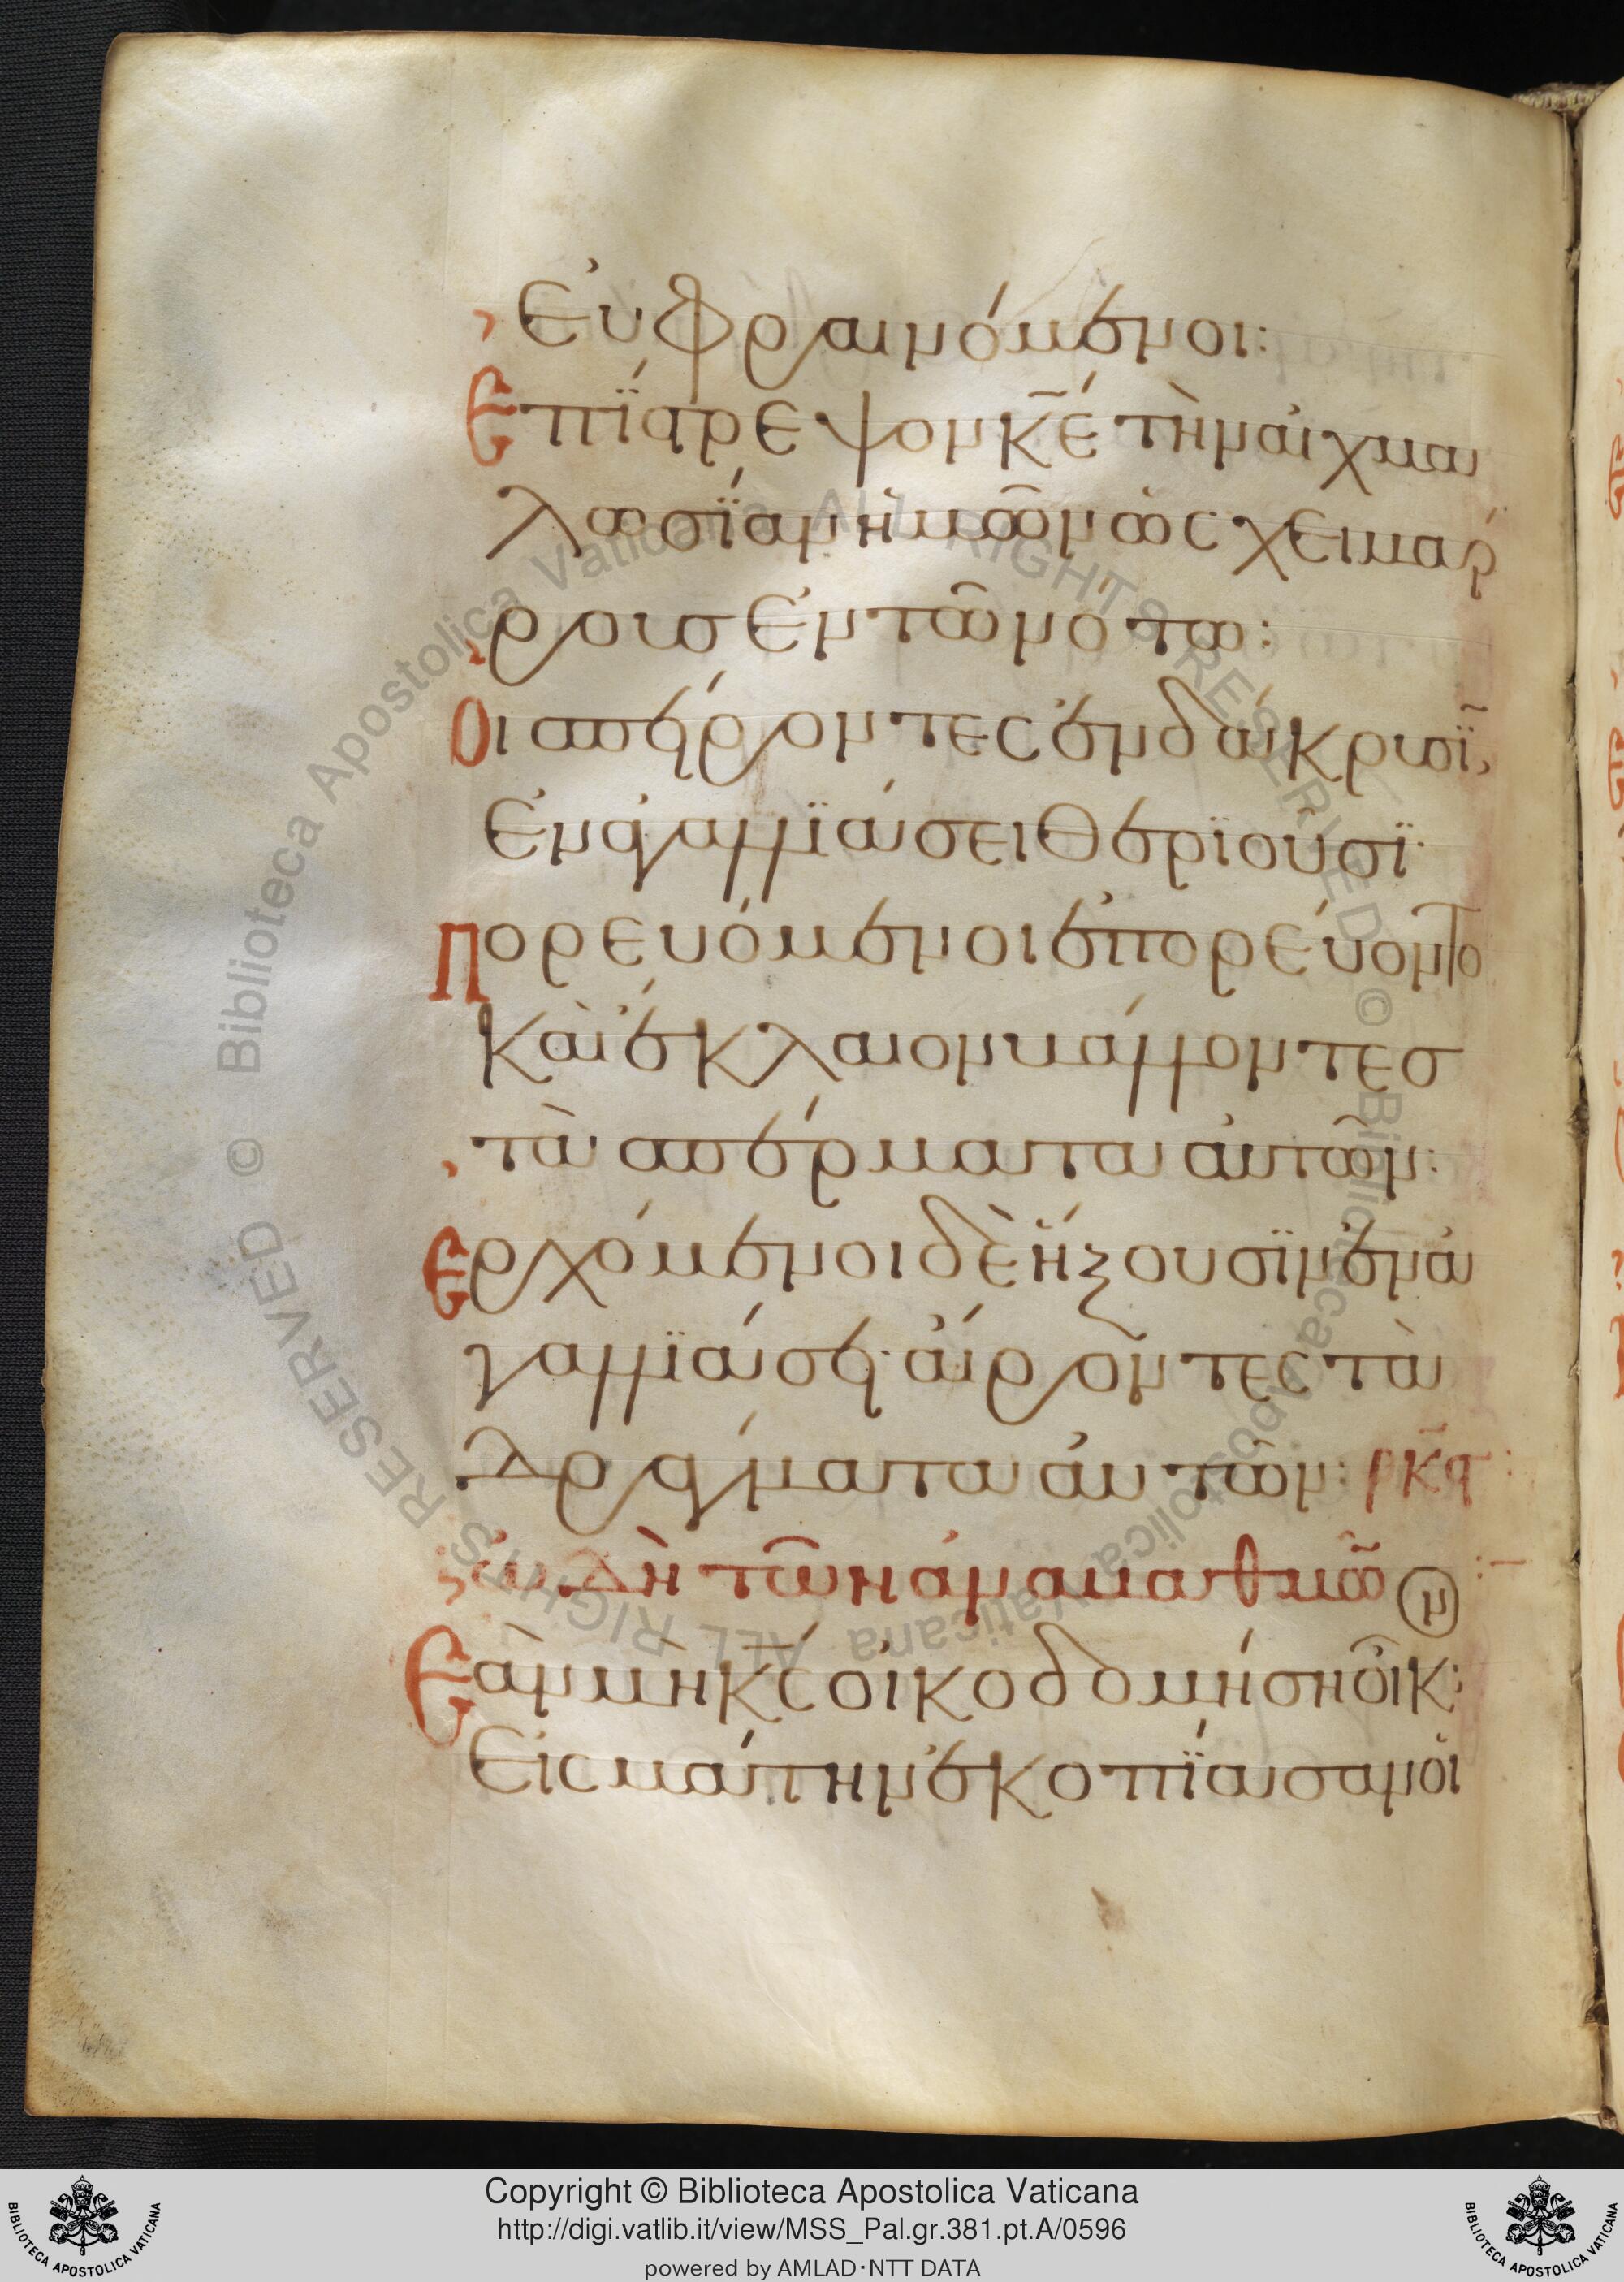 ἐυφραινόμενοι:
Ἐπίστρεψον κ̅ε̅ τὴν αἰχμα
λωσΐαν ἡμῶν ὡς χειμάρ
ρους ἐν τῶ νότω:
Οι σπείροντες ἐν δάκρυσϊ,
ἐν ἀγαλλϊάσει θεριοῦσϊ·
Πορευόμενοι ἐπορέυοντο
καὶ ἔκλαιον βάλλοντες
τὰ σπέρματα ἀυτῶν:
Ερχόμενοι δὲ ἥξουσϊν ἐν ἀ
γαλλϊάσει· ἄιροντες τὰ
δράγματα ἀυτῶν: ρκϛ:
ὠδὴ τῶν ἀναβαθμῶ(ν) :-
Ἐὰν μὴ κ̅ς̅ οἰκοδομήση οἶκ:
Εἰς μάτην ἐκοπϊασαν οἱ
Copyright © Biblioteca Apostolica Vaticana
http://digi.vatlib.it/view/MSS_Pal.gr.381.pt.A/0596
powered by AMLAD·NTT DATA
BIBLIOTECA APOSTOLICA VATICANA
BIBLIOTECA APOSTOLICA VATICANA
© Biblioteca Apostolica Vaticana ALL RIGHTS RESERVED © Biblioteca Apostolica Vaticana ALL RIGHTS RESERVED